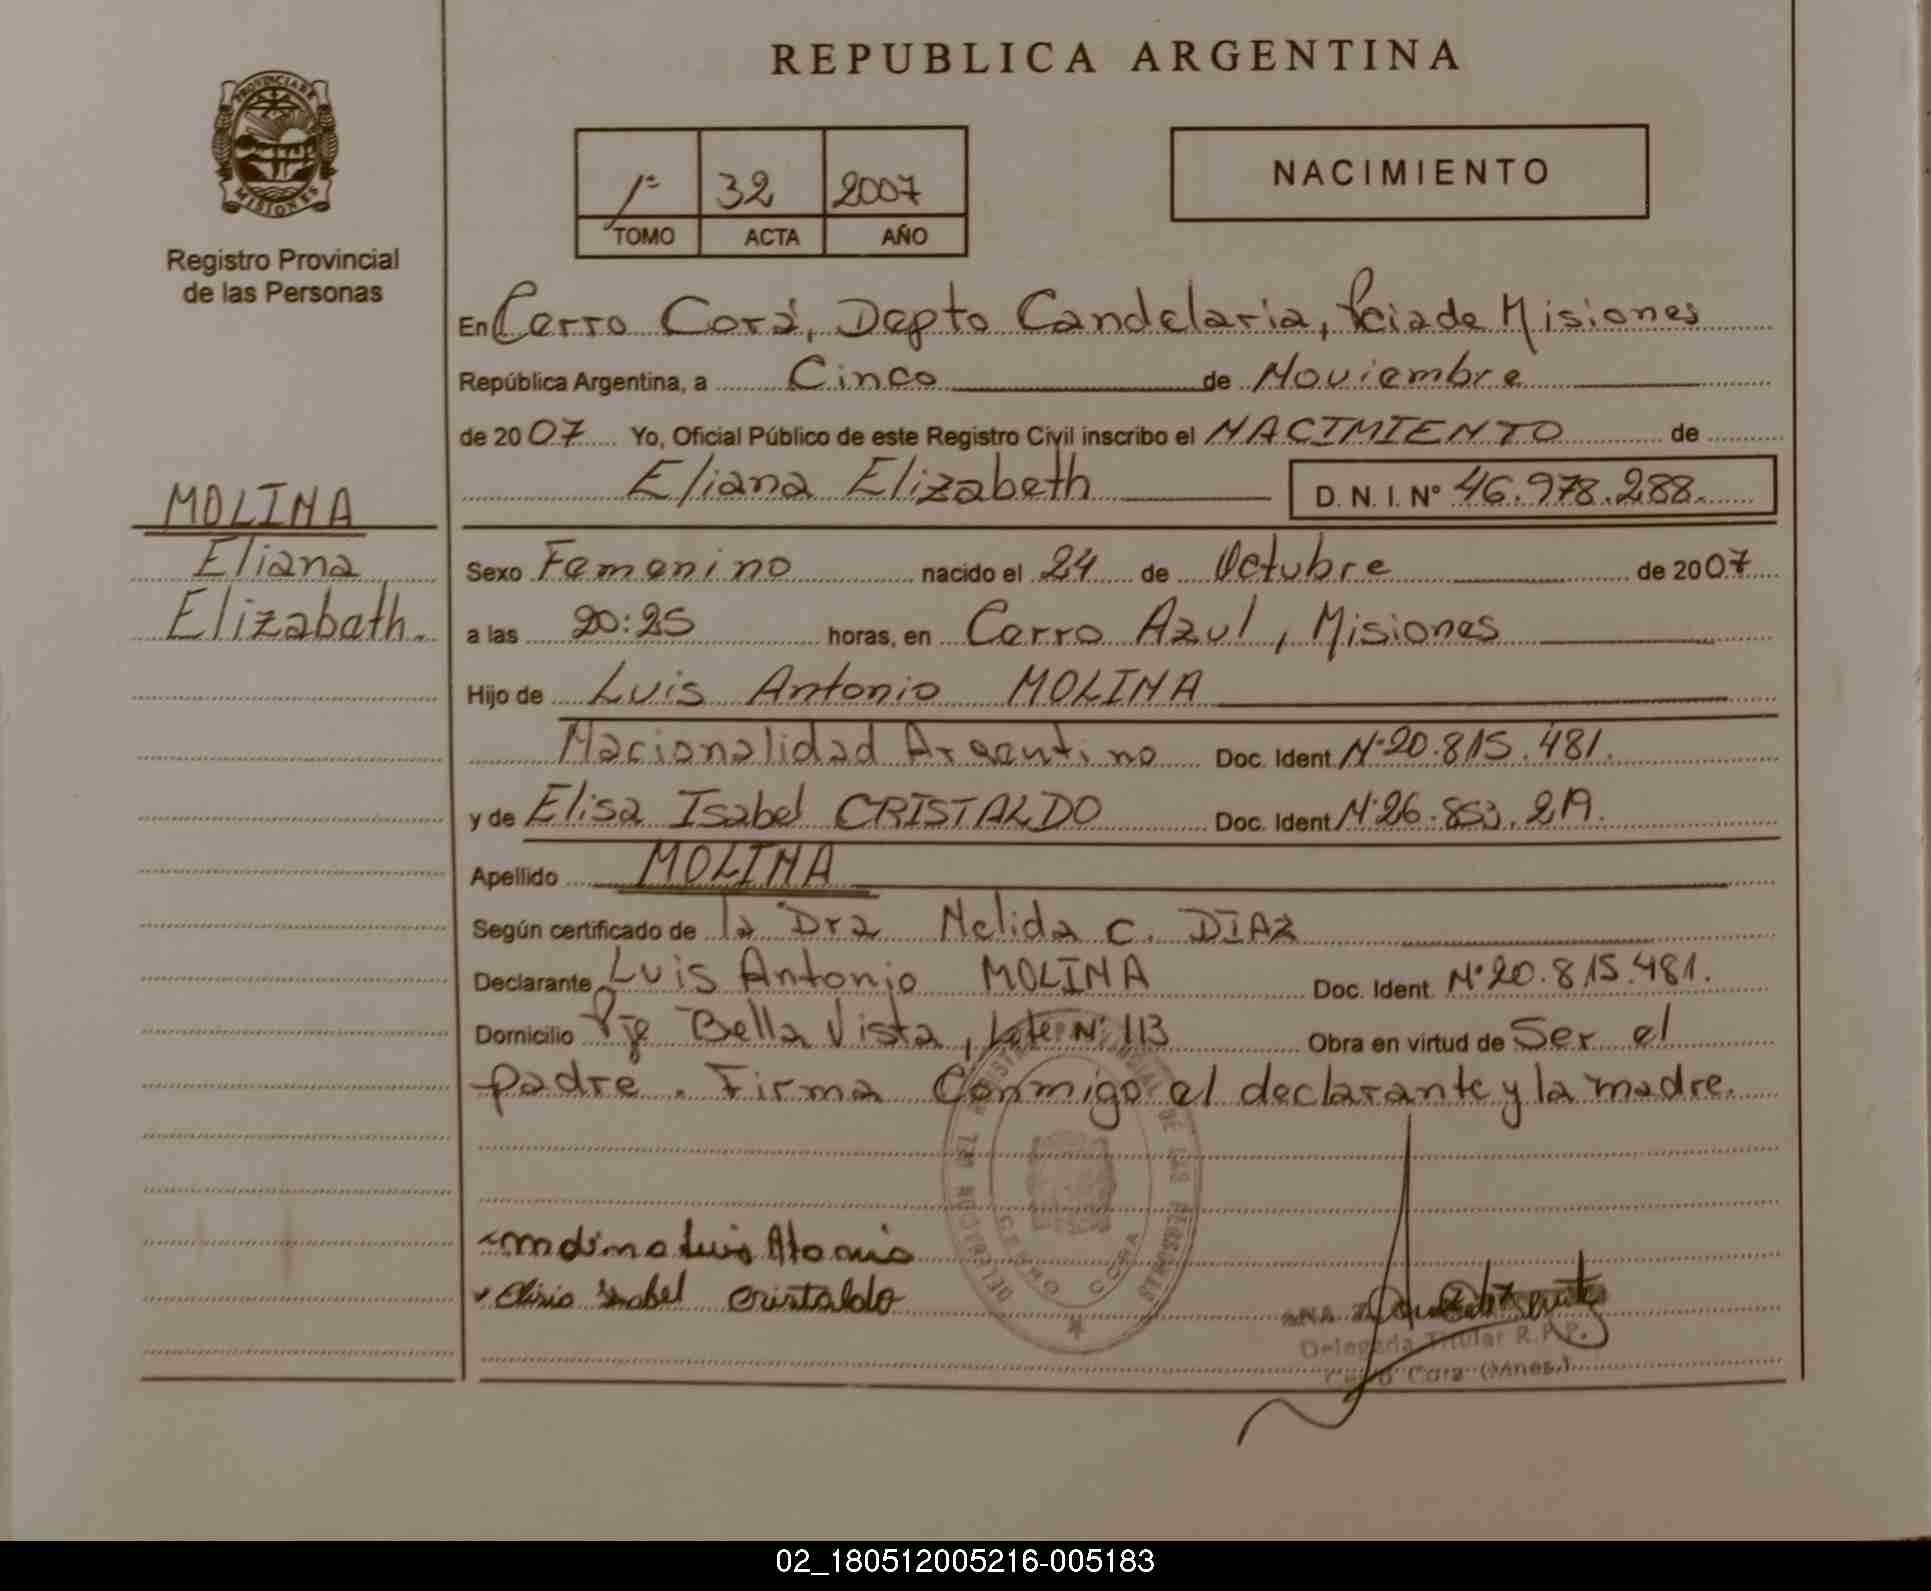 REPUBLICA ARGENTINA
PROVINCIA DE MISIONES
Registro Provincial
de las Personas
1º 32 2007
TOMO ACTA AÑO
NACIMIENTO
En Cerro Corá, Depto Candelaria, Pcia de Misiones
República Argentina, a Cinco de Noviembre
de 2007 Yo, Oficial Público de este Registro Civil inscribo el NACIMIENTO de
Eliana Elizabeth D. N. I. Nº 46.978.288.
MOLINA
Eliana
Elizabeth.
Sexo Femenino nacido el 24 de Octubre de 2007
a las 20:25 horas, en Cerro Azul, Misiones
Hijo de Luis Antonio MOLINA
Nacionalidad Argentino Doc. Ident. Nº 20.815.481.
y de Elisa Isabel CRISTALDO Doc. Ident. Nº 26.853.219.
Apellido MOLINA
Según certificado de la Dra Nelida C. DIAZ
Declarante Luis Antonio MOLINA Doc. Ident. Nº 20.815.481.
Domicilio Pje Bella Vista, Lote Nº 113 Obra en virtud de Ser el
padre. Firma Conmigo el declarante y la madre.
DELEGACION DEL REGISTRO PROVINCIAL DE LAS PERSONAS
CERRO CORA
molina Luis Atonio
Elisa Isabel Cristaldo
ANA
Delegada Titular R.P.P.
Cerro Cora (Mnes.)
02_180512005216-005183